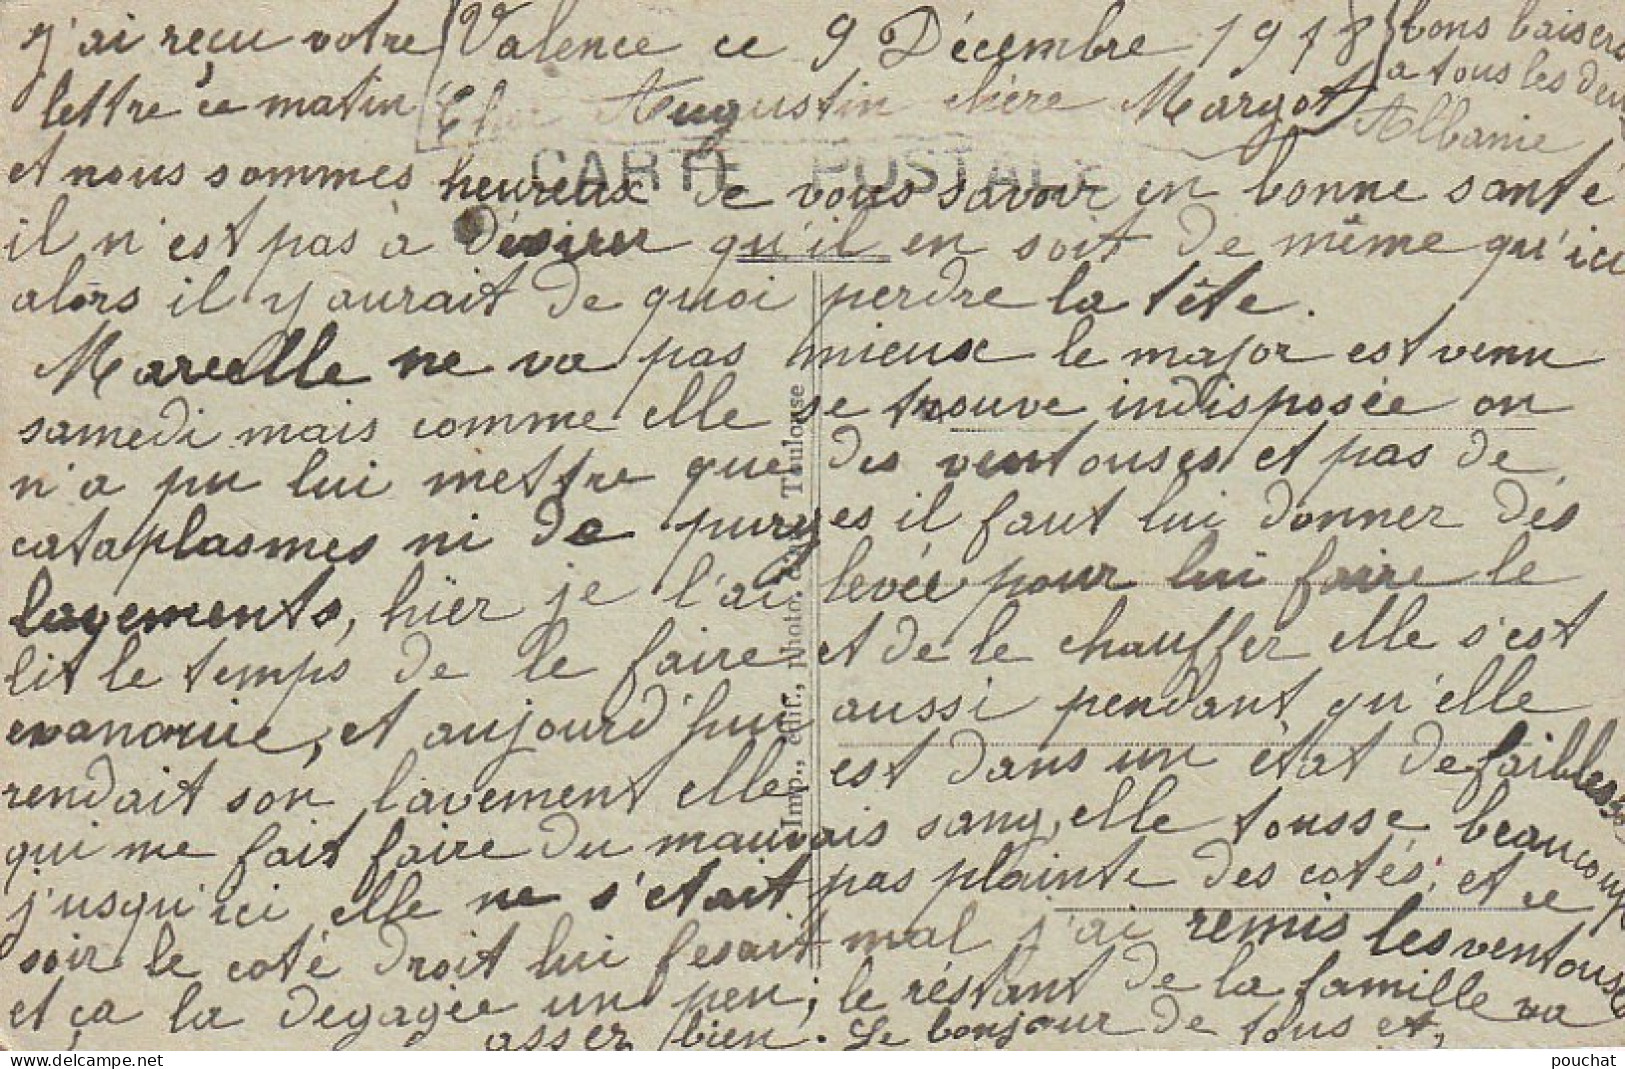 Valence ce 9 Décembre 1918
Cher Augustin chère Margot
j'ai reçu votre
lettre ce matin
CARTE POSTALE
et nous sommes heureux de vous savoir en bonne santé
il n'est pas à désirer qu'il en soit de même qu'ici
alors il y aurait de quoi perdre la tête.
Marcelle ne va pas mieux le major est venu
samedi mais comme elle se trouve indisposée on
n'a pu lui mettre que des ventouses et pas de
cataplasmes ni de purges il faut lui donner des
lavements, hïer je l'ai levée pour lui faire le
lit le temps de le faire et de le chauffer elle s'est
evanouie, et aujourd'hui aussi pendant qu'elle
rendait son lavement elle est dans un état de faiblesse
qui me fait faire du mauvais sang, elle tousse beaucoup
j'usqu'ici elle ne s'etait pas plainte des cotés, et ce
soir le coté droit lui fesait mal j'ai remis les ventouses
et ça la degagée un peu; le réstant de la famille va
assez bien. Le bonjour de tous et,
bons baisers
a tous les deux
Albanie
Imp., édit., photo. Toulouse
pouchat